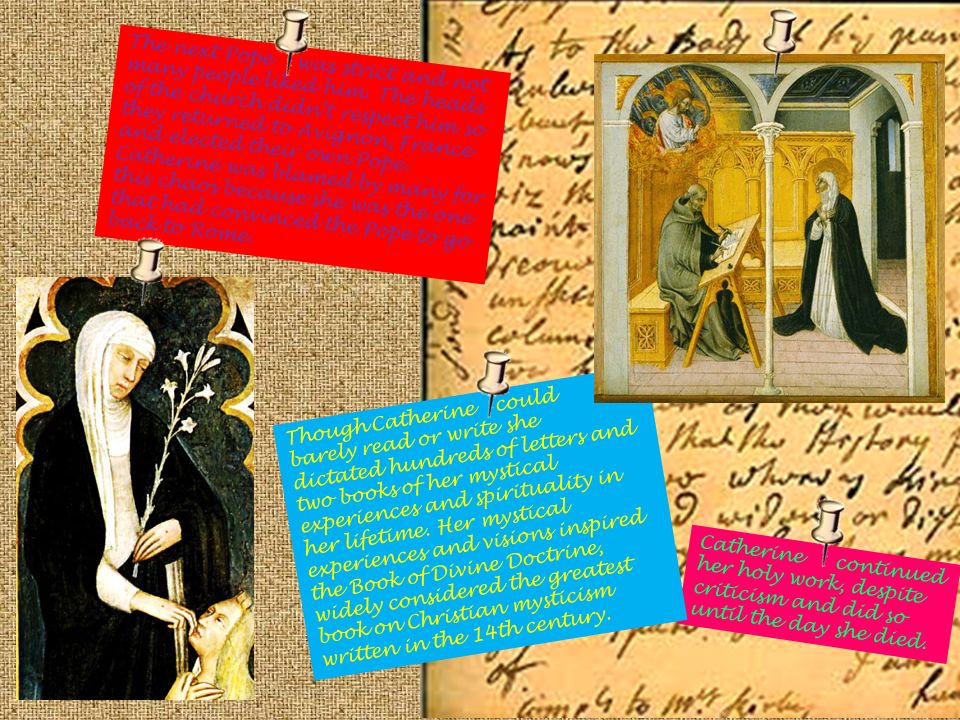 The next Pope was strict and not
many people liked him. The heads
of the church didn't respect him so
they returned to Avignon, France
and elected their own Pope.
Catherine was blamed by many for
this chaos because she was the one
that had convinced the Pope to go
back to Rome.
Though Catherine could
barely read or write she
dictated hundreds of letters and
two books of her mystical
experiences and spirituality in
her lifetime. Her mystical
experiences and visions inspired
the Book of Divine Doctrine,
widely considered the greatest
book on Christian mysticism
written in the 14th century.
Catherine continued
her holy work, despite
criticism and did so
until the day she died.
As to the Body of his
knows
that the History
of
to Mrs